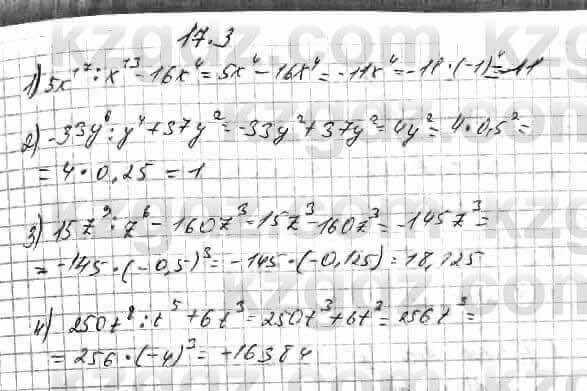 17.3
1) 5x¹⁷ : x¹³ - 16x⁴ = 5x⁴ - 16x⁴ = -11x⁴ = -11 · (-1)⁴ = -11
2) -33y⁶ : y⁴ + 37y² = -33y² + 37y² = 4y² = 4 · 0,5² =
= 4 · 0,25 = 1
3) 15z⁹ : z⁶ - 160z³ = 15z³ - 160z³ = -145z³ =
= -145 · (-0,5)³ = -145 · (-0,125) = 18,125
4) 250t⁸ : t⁵ + 6t³ = 250t³ + 6t³ = 256t³ =
= 256 · (-4)³ = +16384
kzgdz.com